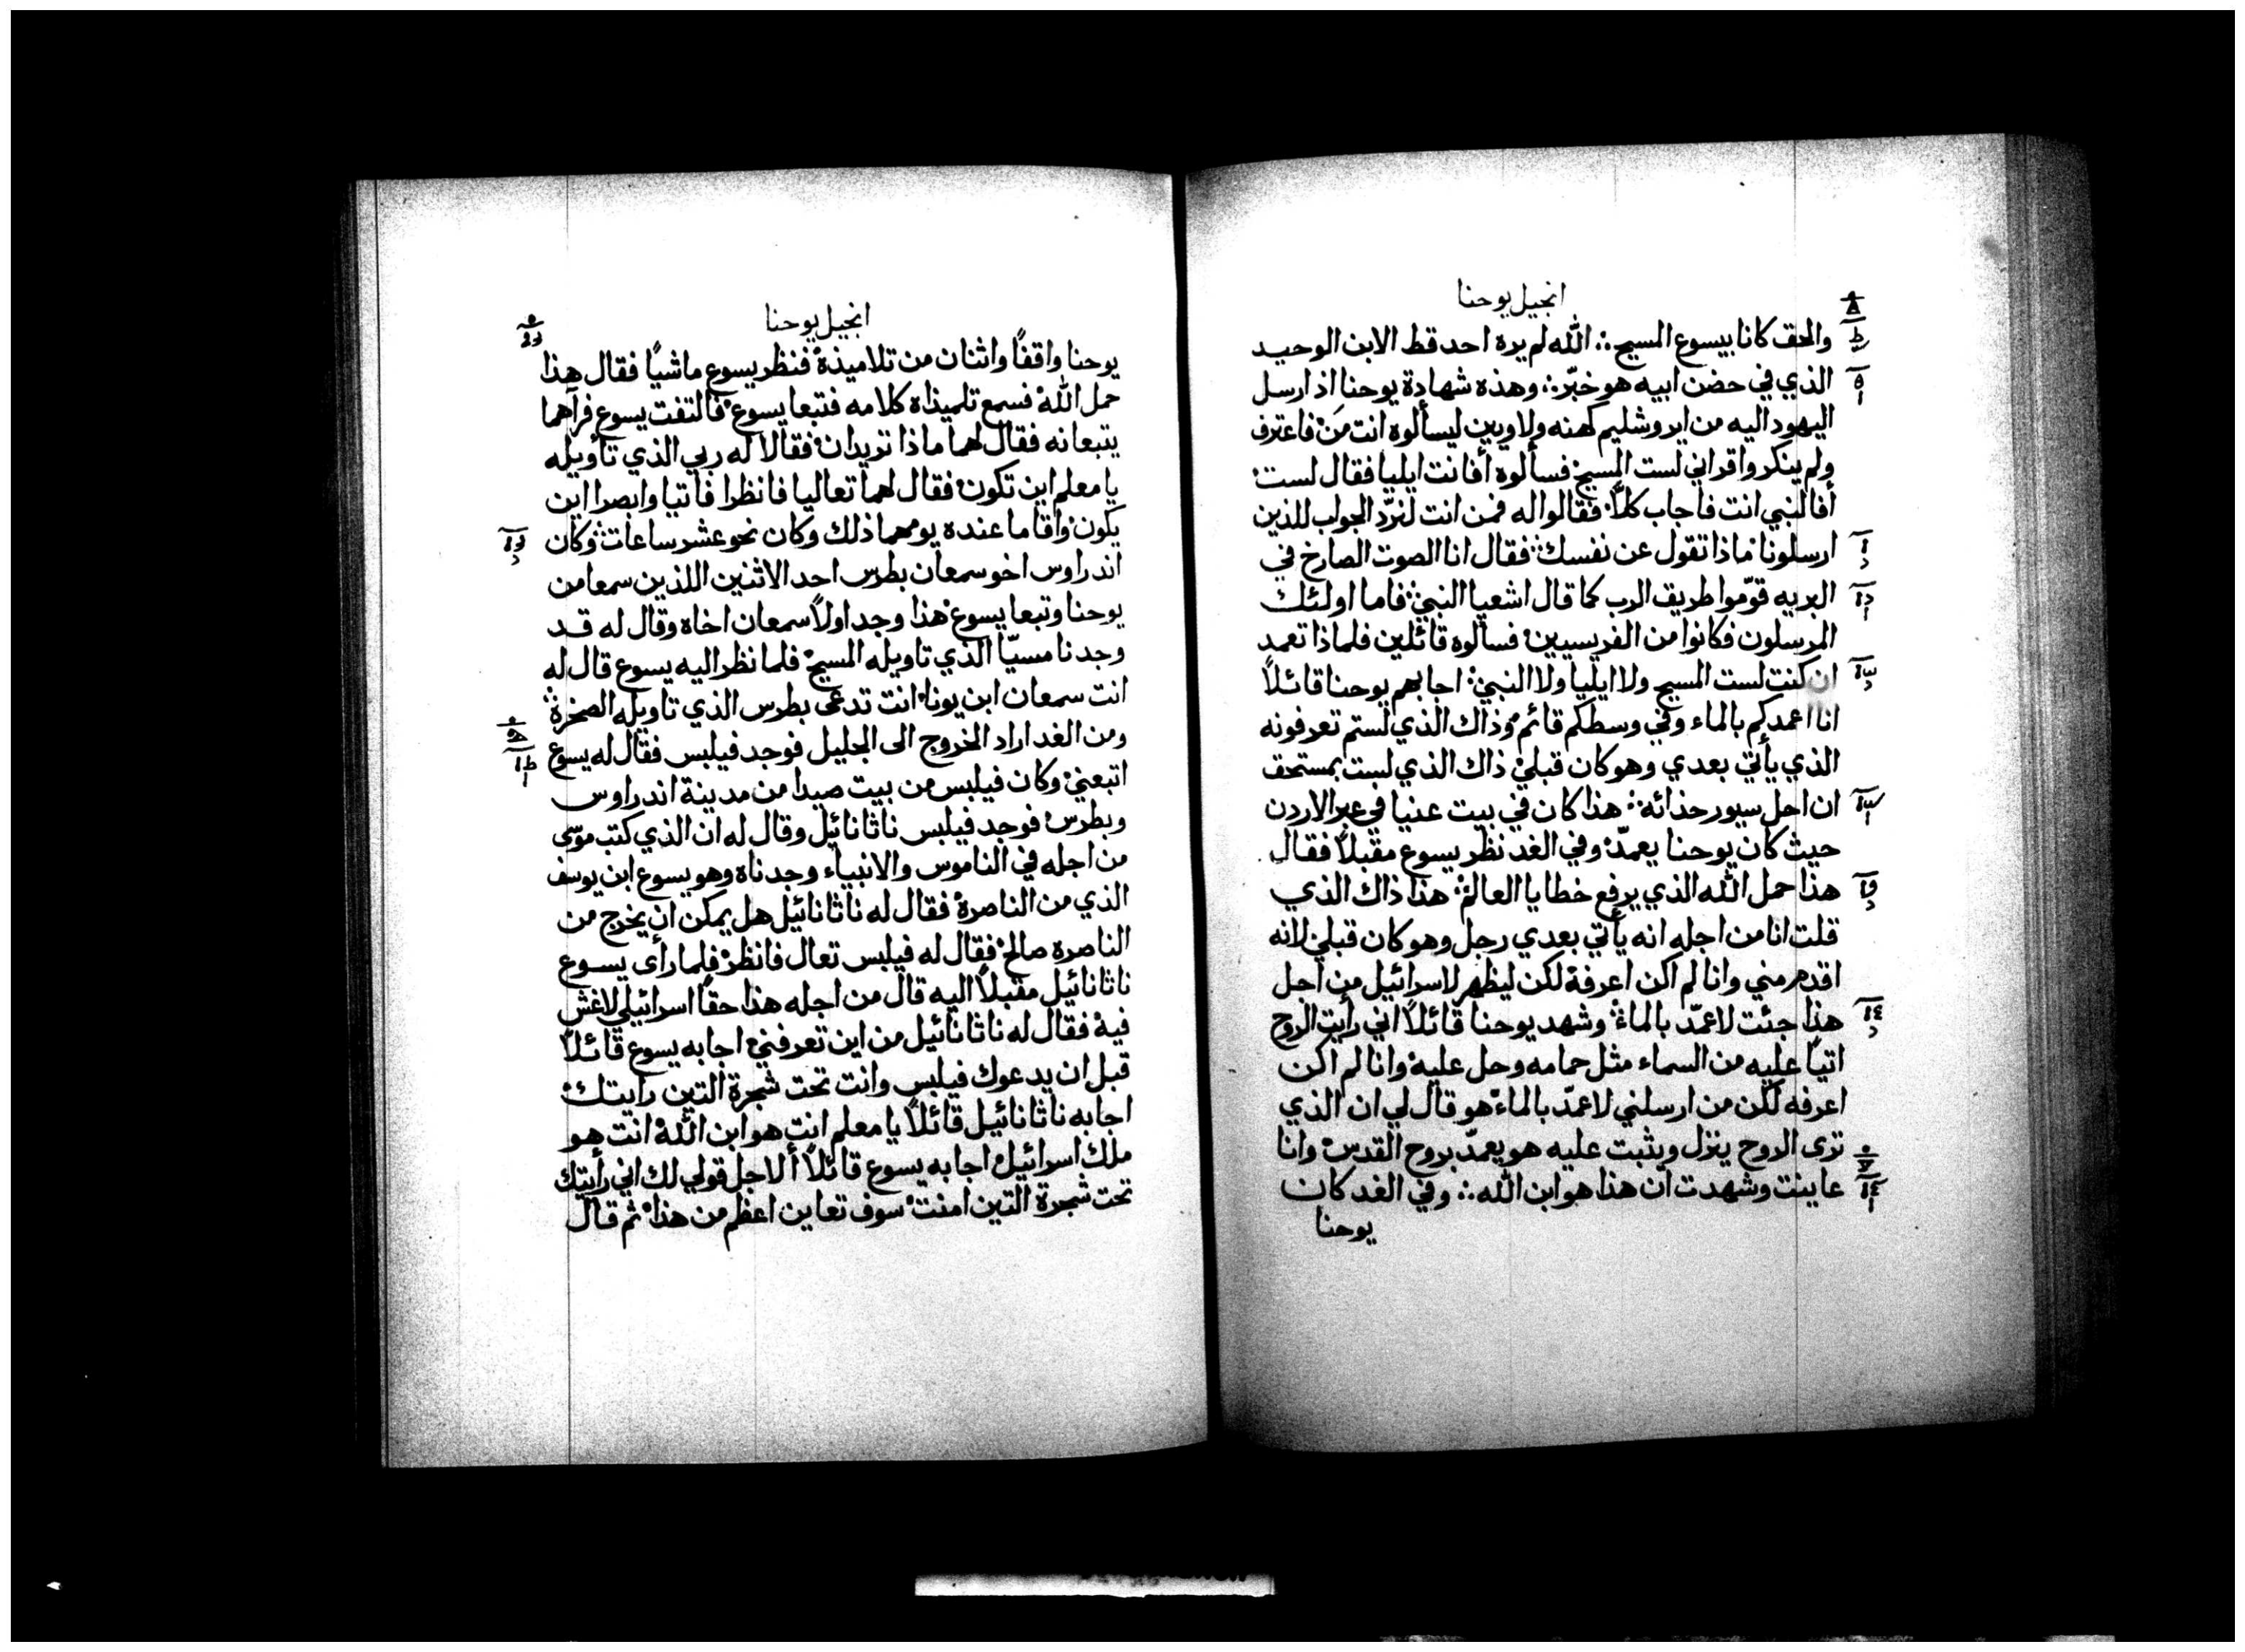 انجيل يوحنا
والحق كانا بيسوع المسيح ∴ الله لم يره احد قط الابن الوحيد
الذي في حضن ابيه هو خبّر ∴ وهذه شهادة يوحنا اذ ارسل
اليهود اليه من ايروشليم كهنه ولاويين ليسألوه انت مَن فاعترف
ولم ينكر واقر اني لست المسيح فسألوه أفانت ايليا فقال لست
أفالنبي انت فاجاب كلاَّ فقالوا له فمن انت لنردّ الجواب للذين
ارسلونا فماذا تقول عن نفسك فقال انا الصوت الصارخ في
البريه قوّموا طريق الرب كما قال اشعيا النبي فاما اولئك
المرسلون فكانوا من الفريسيين فسألوه قائلين فلماذا تعمد
ان كنت لست المسيح ولا ايليا ولا النبي اجابهم يوحنا قائلاً
انا اعمدكم بالماء وفي وسطكم قائم وذاك الذي لستم تعرفونه
الذي يأتي بعدي وهو كان قبلي ذاك الذي لست بمستحق
ان احل سيور حذائه ∴ هذا كان في بيت عنيا في عبر الاردن
حيث كان يوحنا يعمدّ وفي الغد نظر يسوع مقبلاً فقال
هذا حمل الله الذي يرفع خطايا العالم هذا ذاك الذي
قلت انا من اجله انه يأتي بعدي رجل وهو كان قبلي لانه
اقدم مني وانا لم اكن اعرفة لكن ليظهر لاسرائيل من اجل
هذا جئت لاعمّد بالماء وشهد يوحنا قائلاً اني رأيت الروح
اتيًا عليه من السماء مثل حمامه وحل عليه وانا لم اكن
اعرفه لكن من ارسلني لاعمّد بالماء هو قال لي ان الذي
ترى الروح ينزل ويثبت عليه هو يعمدّ بروح القدس وانا
عاينت وشهدت ان هذا هو ابن الله ∴ وفي الغد كان
يوحنا
انجيل يوحنا
يوحنا واقفًا واثنان من تلاميذة فنظر يسوع ماشيًا فقال هذا
حمل الله فسمع تلميذاه كلامه فتبعا يسوع فالتفت يسوع فرآهما
يتبعانه فقال لهما ماذا تريدان فقالا له ربي الذي تأويله
يا معلم اين تكون فقال لهما تعاليا فانظرا فأتيا وابصرا اين
يكون وأقاما عنده يومهما ذلك وكان نحو عشر ساعات وكان
اندراوس اخو سمعان بطرس احد الاثنين اللذين سمعا من
يوحنا وتبعا يسوع هذا وجد اولاً سمعان اخاه وقال له قد
وجدنا مسيّا الذي تاويله المسيح فلما نظر اليه يسوع قال له
انت سمعان ابن يونا انت تدعى بطرس الذي تاويله الصخرة
ومن الغد اراد الخروج الى الجليل فوجد فيلبس فقال له يسوع
اتبعني وكان فيلبس من بيت صيدا من مدينة اندراوس
وبطرس فوجد فيلبس ناثانائيل وقال له ان الذي كتب موسى
من اجله في الناموس والانبياء وجدناه وهو يسوع ابن يوسف
الذي من الناصرة فقال له ناثانائيل هل يمكن ان يخرج من
الناصرة صالح فقال له فيلبس تعال فانظر فلما رأى يسوع
ناثانائيل مقبلاً اليه قال من اجله هذا حقًا اسرائيلي لاغش
فية فقال له ناثانائيل من اين تعرفني اجابه يسوع قائلاً
قبل ان يدعوك فيلبس وانت تحت شجرة التين رايتك
اجابه ناثانائيل قائلاً يا معلم انت هو ابن الله انت هو
ملك اسرائيل اجابه يسوع قائلاً ألاجل قولي لك اني رأيتك
تحت شجرة التين امنت سوف تعاين اعظم من هذا ثم قال